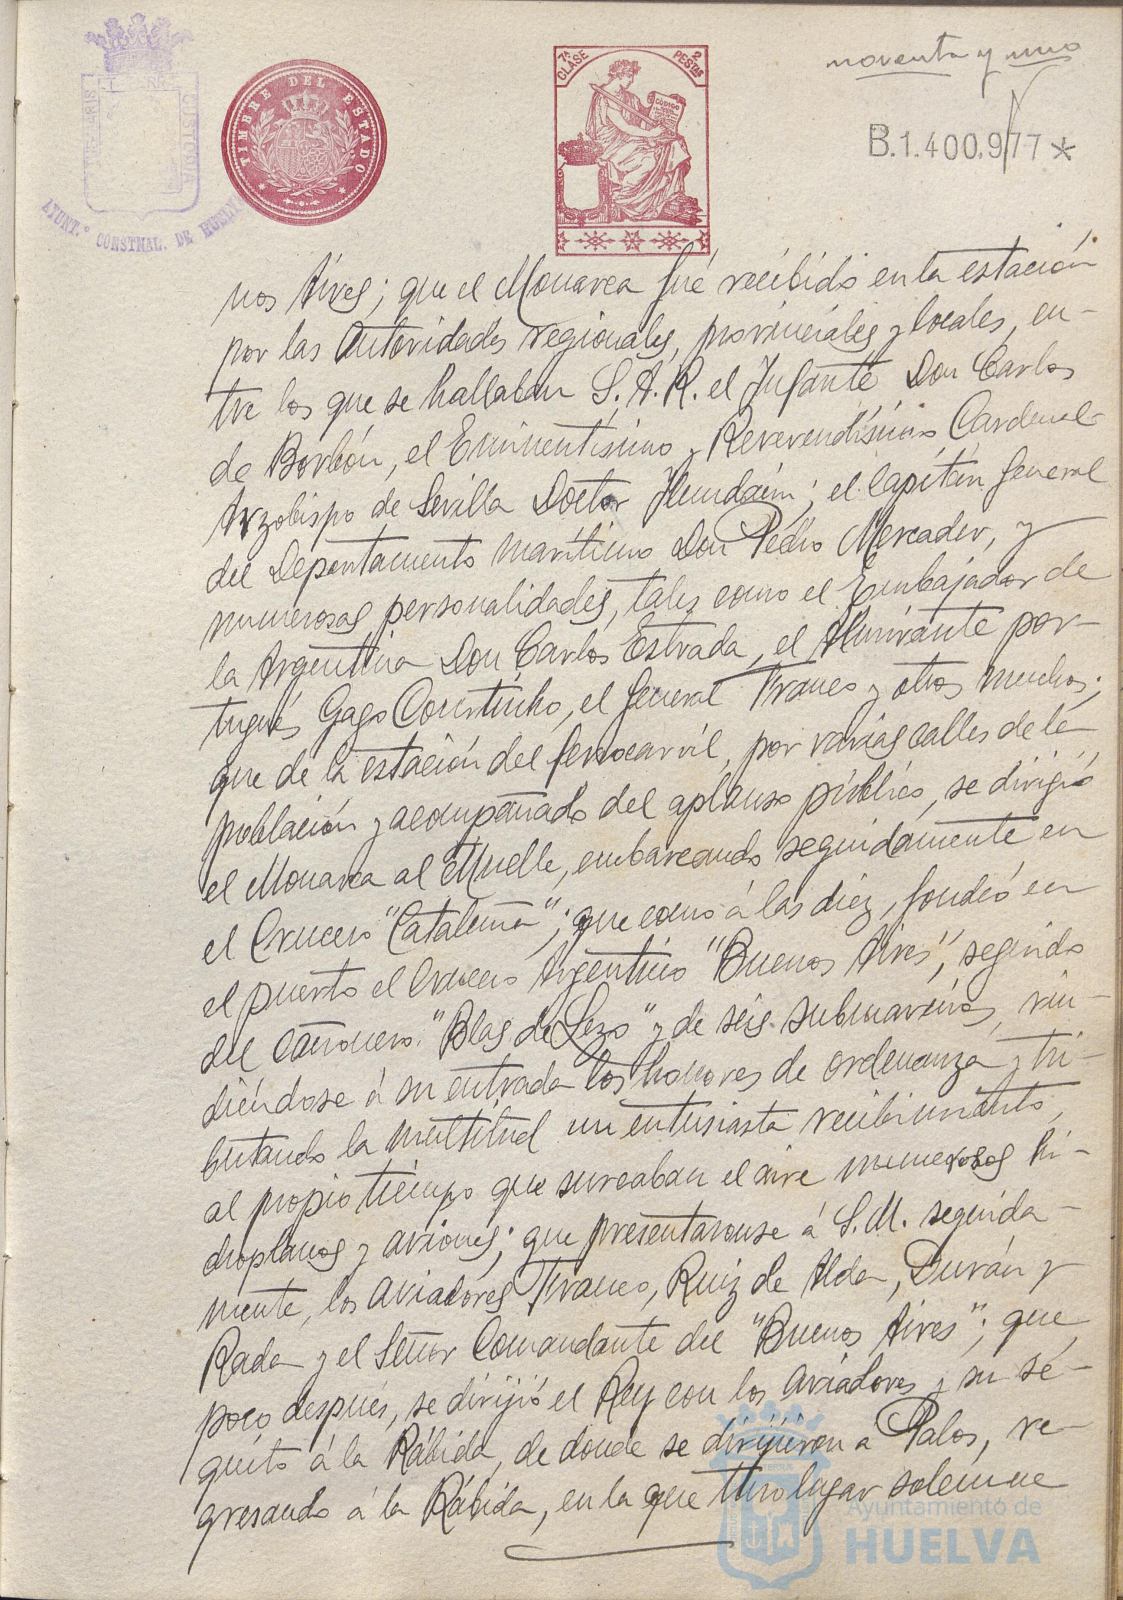 noventa y uno
TIMBRE DEL ESTADO
7ª CLASE 2 PESTAS
CÓDIGO
B.1.400.977*
CUSTODIA
AYUNT.º CONSTNAL. DE HUELVA
nos Aires; que el Monarca fué recibido en la estación
por las Autoridades regionales, provinciales y locales, en-
tre los que se hallaban S.A.R. el Infante Don Carlos
de Borbón, el Eminentísimo y Reverendísimo Cardenal-
Arzobispo de Sevilla Doctor Ilundáin; el Capitán General
del Departamento marítimo Don Pedro Mercader, y
numerosas personalidades, tales como el Embajador de
la Argentina Don Carlos Estrada, el Almirante por-
tugués Gago Coustinho, el General Franco y otros muchos;
que de la estación del ferrocarril, por varias calles de la
población y acompañado del aplauso público, se dirigió
el Monarca al Muelle, embarcando seguidamente en
el Crucero "Cataluña"; que como á las diez, fondeó en
el puerto el Crucero Argentino "Buenos Aires", seguido
del cañonero "Blas de Lezo" y de seis submarinos, rin-
diéndose á su entrada los honores de ordenanza y tri-
butando la multitud un entusiasta recibimiento,
al propio tiempo que surcaban el aire numerosos hi-
droplanos y aviones; que presentaronse á S.M. seguida-
mente, los aviadores Franco, Ruiz de Alda, Durán y
Rada y el Señor Comandante del "Buenos Aires"; que
poco después, se dirijió el Rey con los aviadores y su sé-
quito á la Rábida, de donde se dirijieron a Palos, re-
gresando á la Rábida, en la que tuvo lugar solemne
Ayuntamiento de
HUELVA